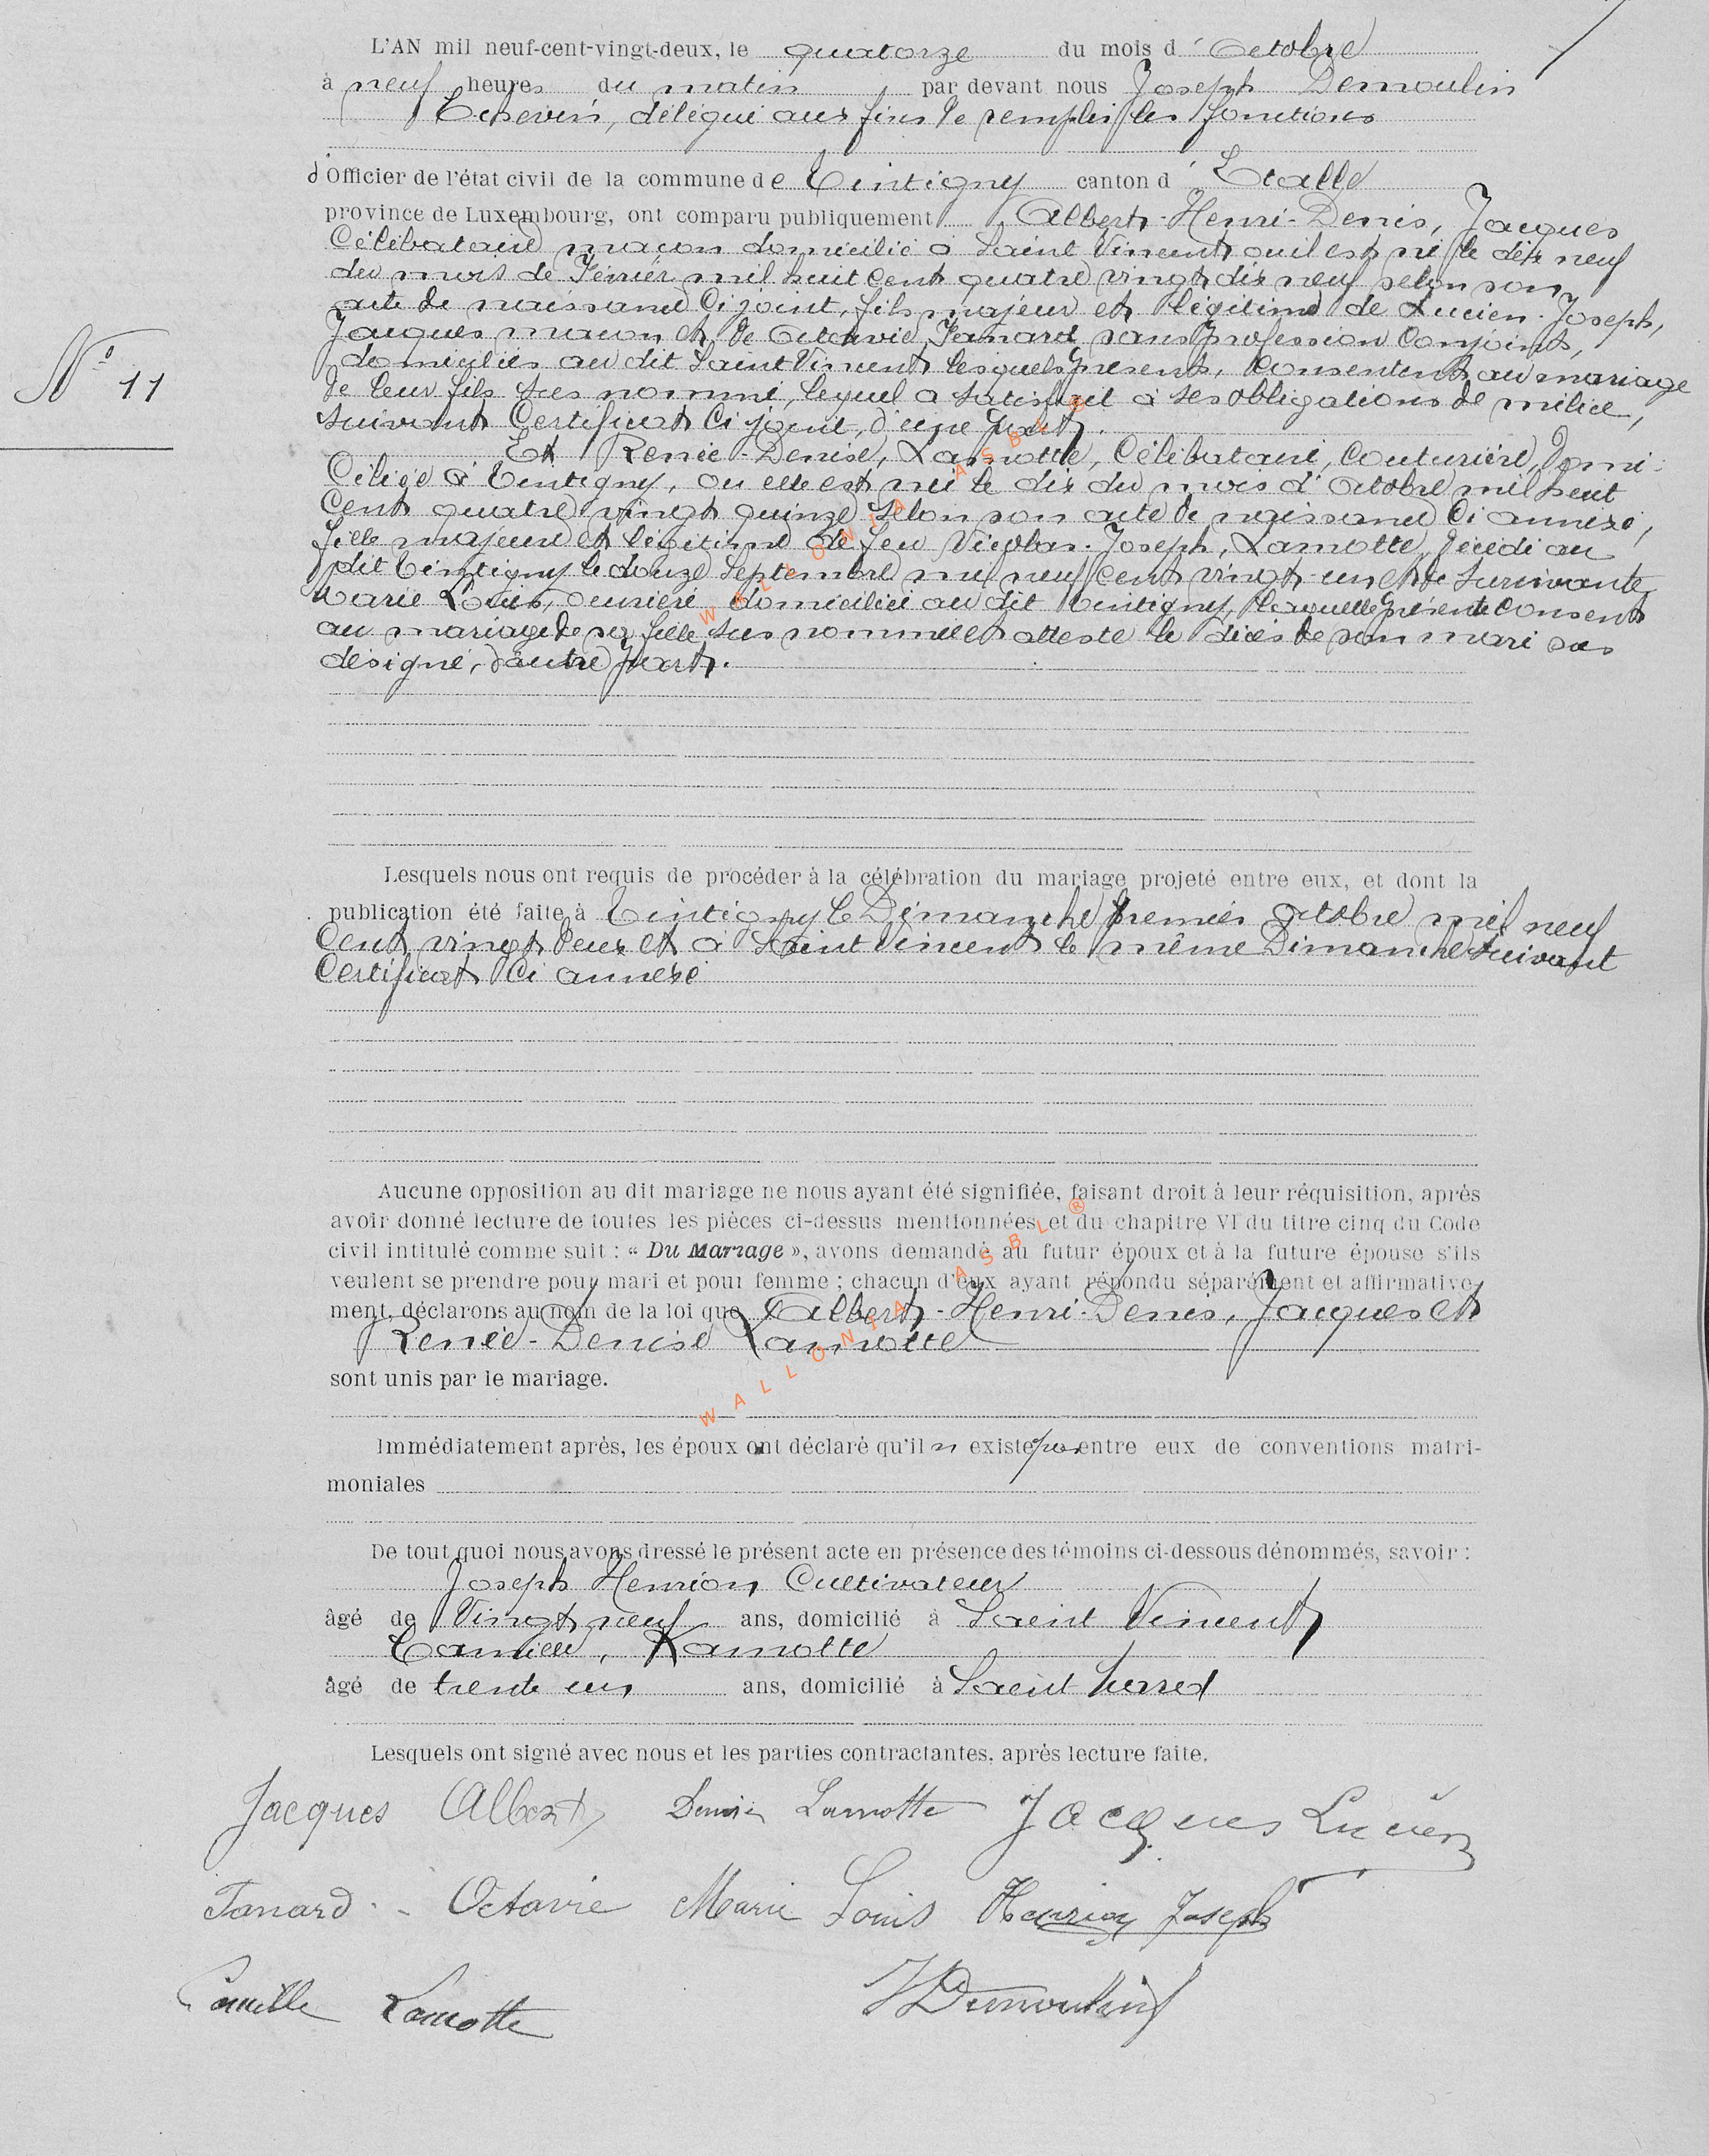 L'AN mil neuf-cent-vingt-deux, le quatorze du mois d'Octobre
à neuf heures du matin par devant nous Joseph Demoulin
Echevin, délégué aux fins de remplir les fonctions
d'Officier de l'état civil de la commune de Tintigny canton d'Etalle
province de Luxembourg, ont comparu publiquement Albert-Henri-Denis, Jacques
Célibataire maçon domicilié à Saint Vincent où il est né le dix neuf
du mois de Février mil huit cent quatre vingt dix neuf selon son
acte de naissance Ci joint, fils majeur et légitime de Lucien-Joseph,
N° 11
Jacques maçon et de Octavie, Fanard sans profession Conjoints,
domiciliés au dit Saint Vincent lesquels présents, Consentent au mariage
de leur fils sus nommé, lequel a satisfait à ses obligations de milice,
suivant Certificat Ci joint, d'une part.
Et Renée-Denise, Lamotte, Célibataire, Couturière, Domi-
Ciliée à Tintigny, où elle est née le dix du mois d'Octobre mil huit
Cent quatre vingt quinze selon son acte de naissance Ci annexé,
fille majeure et légitime de feu Nicolas-Joseph, Lamotte, décédé au
dit Tintigny le douze Septembre mil neuf cent vingt-un et de survivante
Marie Louis, domiciliée au dit Tintigny, laquelle présente Consent
au mariage de sa fille sus nommée et atteste le décès de son mari sus
désigné, d'autre part.
Lesquels nous ont requis de procéder à la célébration du mariage projeté entre eux, et dont la
publication été faite à Tintigny le Dimanche premier Octobre mil neuf
Cent vingt deux et à Saint Vincent le même Dimanche suivant
Certificat Ci annexé
Aucune opposition au dit mariage ne nous ayant été signifiée, faisant droit à leur réquisition, après
avoir donné lecture de toutes les pièces ci-dessus mentionnées et du chapitre VI du titre cinq du Code
civil intitulé comme suit : « Du Mariage », avons demandé au futur époux et à la future épouse s'ils
veulent se prendre pour mari et pour femme ; chacun d'eux ayant répondu séparément et affirmative-
ment, déclarons au nom de la loi que Albert-Henri-Denis, Jacques et
Renée-Denise Lamotte
sont unis par le mariage.
WALLONIA ASBL ®
Immédiatement après, les époux ont déclaré qu'il n existe pas entre eux de conventions matri-
moniales
De tout quoi nous avons dressé le présent acte en présence des témoins ci-dessous dénommés, savoir :
Joseph Henrion Cultivateur
âgé de Vingt neuf ans, domicilié à Saint Vincent
Camille, Lamotte
âgé de trente un ans, domicilié à Saint
Lesquels ont signé avec nous et les parties contractantes, après lecture faite.
Jacques Albert Denise Lamotte Jacques Lucien
Fanard - Octavie Marie Louis Henrion Joseph
Camille Lamotte JDemoulin